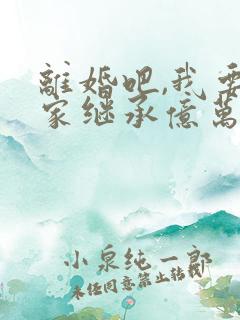 離婚吧,我要
家继承億萬
小泉纯一郎
未任同意禁止转载